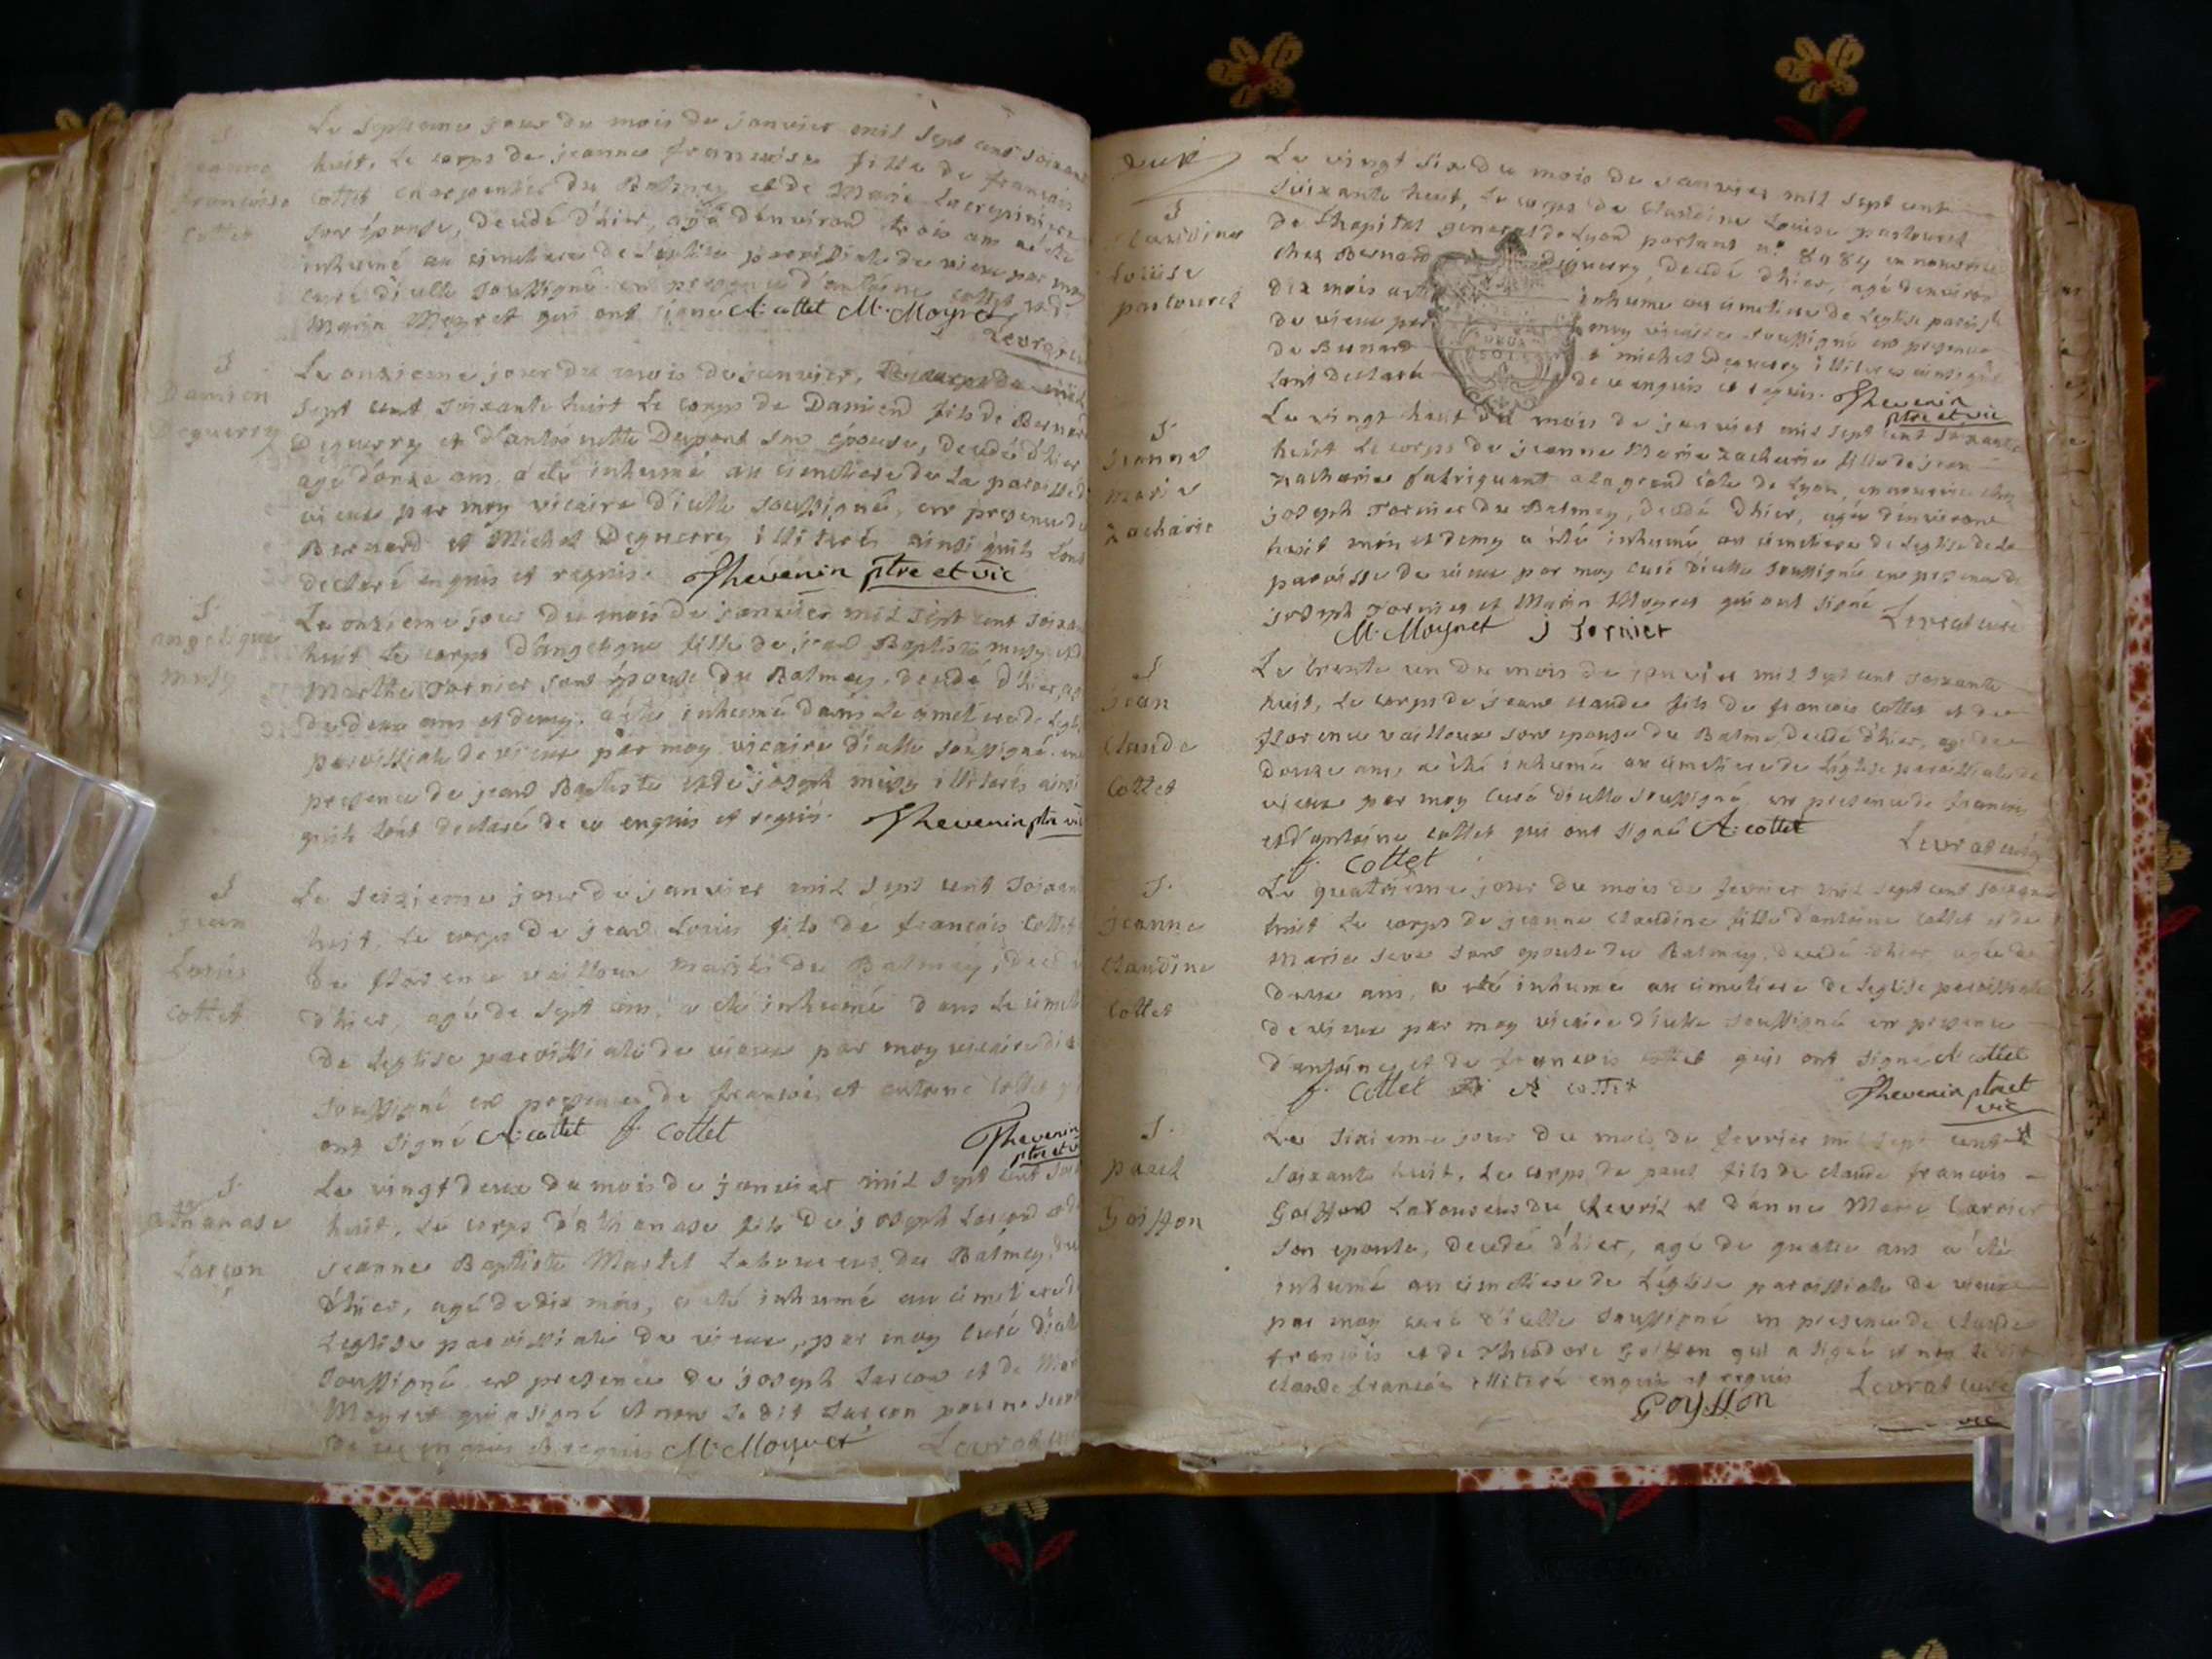 Le septieme jour du mois de janvier mil sept cent soixante
S
jeanne
francoise
Cottet
huit, Le corps de jeanne francoise fille de francois
Cottet charpentier du Balmey et de Marie
son épouse, decedé d'hier, agé d'environd trois ans a été
inhumé au cimetiere de l'eglise paroissiale de vieux par moy
curé d'icelle soussigné en presence d'antoine Cottet et de
Marin Moyret qui ont signé A: cottet M. Moyret
Levrat
S
Damien
Deguerry
Le onzieme jour du mois de janvier, mil
sept cent soixante huit Le corps de Damien fils de Bernard
Deguerry et d'antoinette Dupont son épouse, decedé d'hier
agé d'onze ans, a eté inhumé au cimetiere de la paroisse de
vieux par moy vicaire d'icelle soussigné, en presence de
Bernard et Michel Deguerry illiterés ainsi quils l'ont
declaré enquis et requis. Thévenin ptre et vic
S
angelique
musy
Le onzieme jour du mois de janvier mil sept cent soixante
huit Le corps d'angelique fille de jean Baptiste musy et de
Marthe Tornier son épouse du Balmey, decedé d'hier, agé
de deux ans et demy, a été inhumé dans le cimetiere de l'eglise
paroissiale de vieux par moy vicaire d'icelle soussigné en
presence de jean Baptiste et de joseph musy illiterés ainsi
quils l'ont declaré de ce enquis et requis. Thevenin ptre vic
S
jean
Louis
Cottet
Le seizieme jour de janvier mil sept cent soixante
huit, Le corps de jean Louis fils de francois Cottet
de florence vailloux mariés du Balmey, decedé
d'hier, agé de sept ans, a eté inhumé dans le cimetiere
de l'eglise paroissiale de vieux par moy vicaire d'icelle
soussigné en presence de francois et antoine Cottet qui
ont signé A: cottet f. cottet
Thevenin
ptre et vic
S
athanase
Larçon
Le vingt deux du mois de janvier mil sept cent soixante
huit, Le corps d'athanase fils de joseph Larçon et de
jeanne Baptiste Martel Laboureurs du Balmey, decedé
d'hier, agé de dix mois, a eté inhumé au cimetiere de
l'eglise paroissiale de vieux, par moy curé d'icelle
soussigné en presence de joseph Larçon et de Marin
Moyret qui a signé et non le dit Larçon pour ne savoir
de ce enquis et requis M. Moyret Levrat curé
Le vingt six du mois de janvier mil sept cent
S
Claudine
Loüise
pastourel
soixante huit, Le corps de Claudine Loüise pastourel
de l'hopital general de Lyon portant n° 8984 en nourrice
chez Bernard Deguerry, decedé d'hier, agé denviron
dix mois a eté inhumé au cimetiere de l'eglise paroissiale
de vieux par moy vicaire soussigné en presence
de Bernard et michel Deguerry illiterés ainsi quils
l'ont declaré de ce enquis et requis. Thevenin
ptre et vic
S
Jeanne
marie
Zacharie
Le vingt huit du mois de janvier mil sept cent soixante
huit Le corps de jeanne Marie Zacharie fille de jean
Zacharie fabriquant a la grand côte de Lyon, en nourrice chez
joseph Tornier du Balmey, decedé d'hier, agée d'environ
huit mois et demy a été inhumé au cimetiere de l'eglise de la
paroisse de vieux par moy curé d'icelle soussigné en presence de
joseph Tornier et Marin Moyret qui ont signé
Levrat curé
M. Moyret J tornier
S
jean
Claude
Cottet
Le trente un du mois de janvier mil sept cent soixante
huit, Le corps de jean claude fils de francois Cottet et de
florence vailloux son epouse du Balme, decedé d'hier, agé de
douze ans, a été inhumé au cimetiere de l'eglise paroissiale de
vieux par moy curé d'icelle soussigné en presence de francois
et d'antoine Cottet qui ont signé A: cottet
f. cottet
Levrat curé
S.
jeanne
Claudine
Cottet
Le quatrieme jour du mois de fevrier mil sept cent soixante
huit Le corps de jeanne Claudine fille d'antoine Cottet et de
Marie seve son epouse du Balmey, decedé d'hier, agée de
deux ans, a eté inhumé au cimetiere de l'eglise paroissiale
de vieux par moy vicaire d'icelle soussigné en presence
d'antoine et de francois Cottet qui ont signé A: cottet
f. cottet A cottet
Thevenin ptre et
vic
S.
paul
Goiffon
Le sixieme jour du mois de fevrier mil sept cent
soixante huit, Le corps de paul fils de claude francois
Goiffon Laboureur du Chevril et d'anne Marie Carrier
son epouse, decedé d'hier, agé de quatre ans a été
inhumé au cimetiere de l'eglise paroissiale de vieux
par moy curé d'icelle soussigné en presence de claude
francois et de Theodore Goiffon qui a signé et non le dit
claude francois illiteré enquis et requis Levrat curé
Goyffon
vic